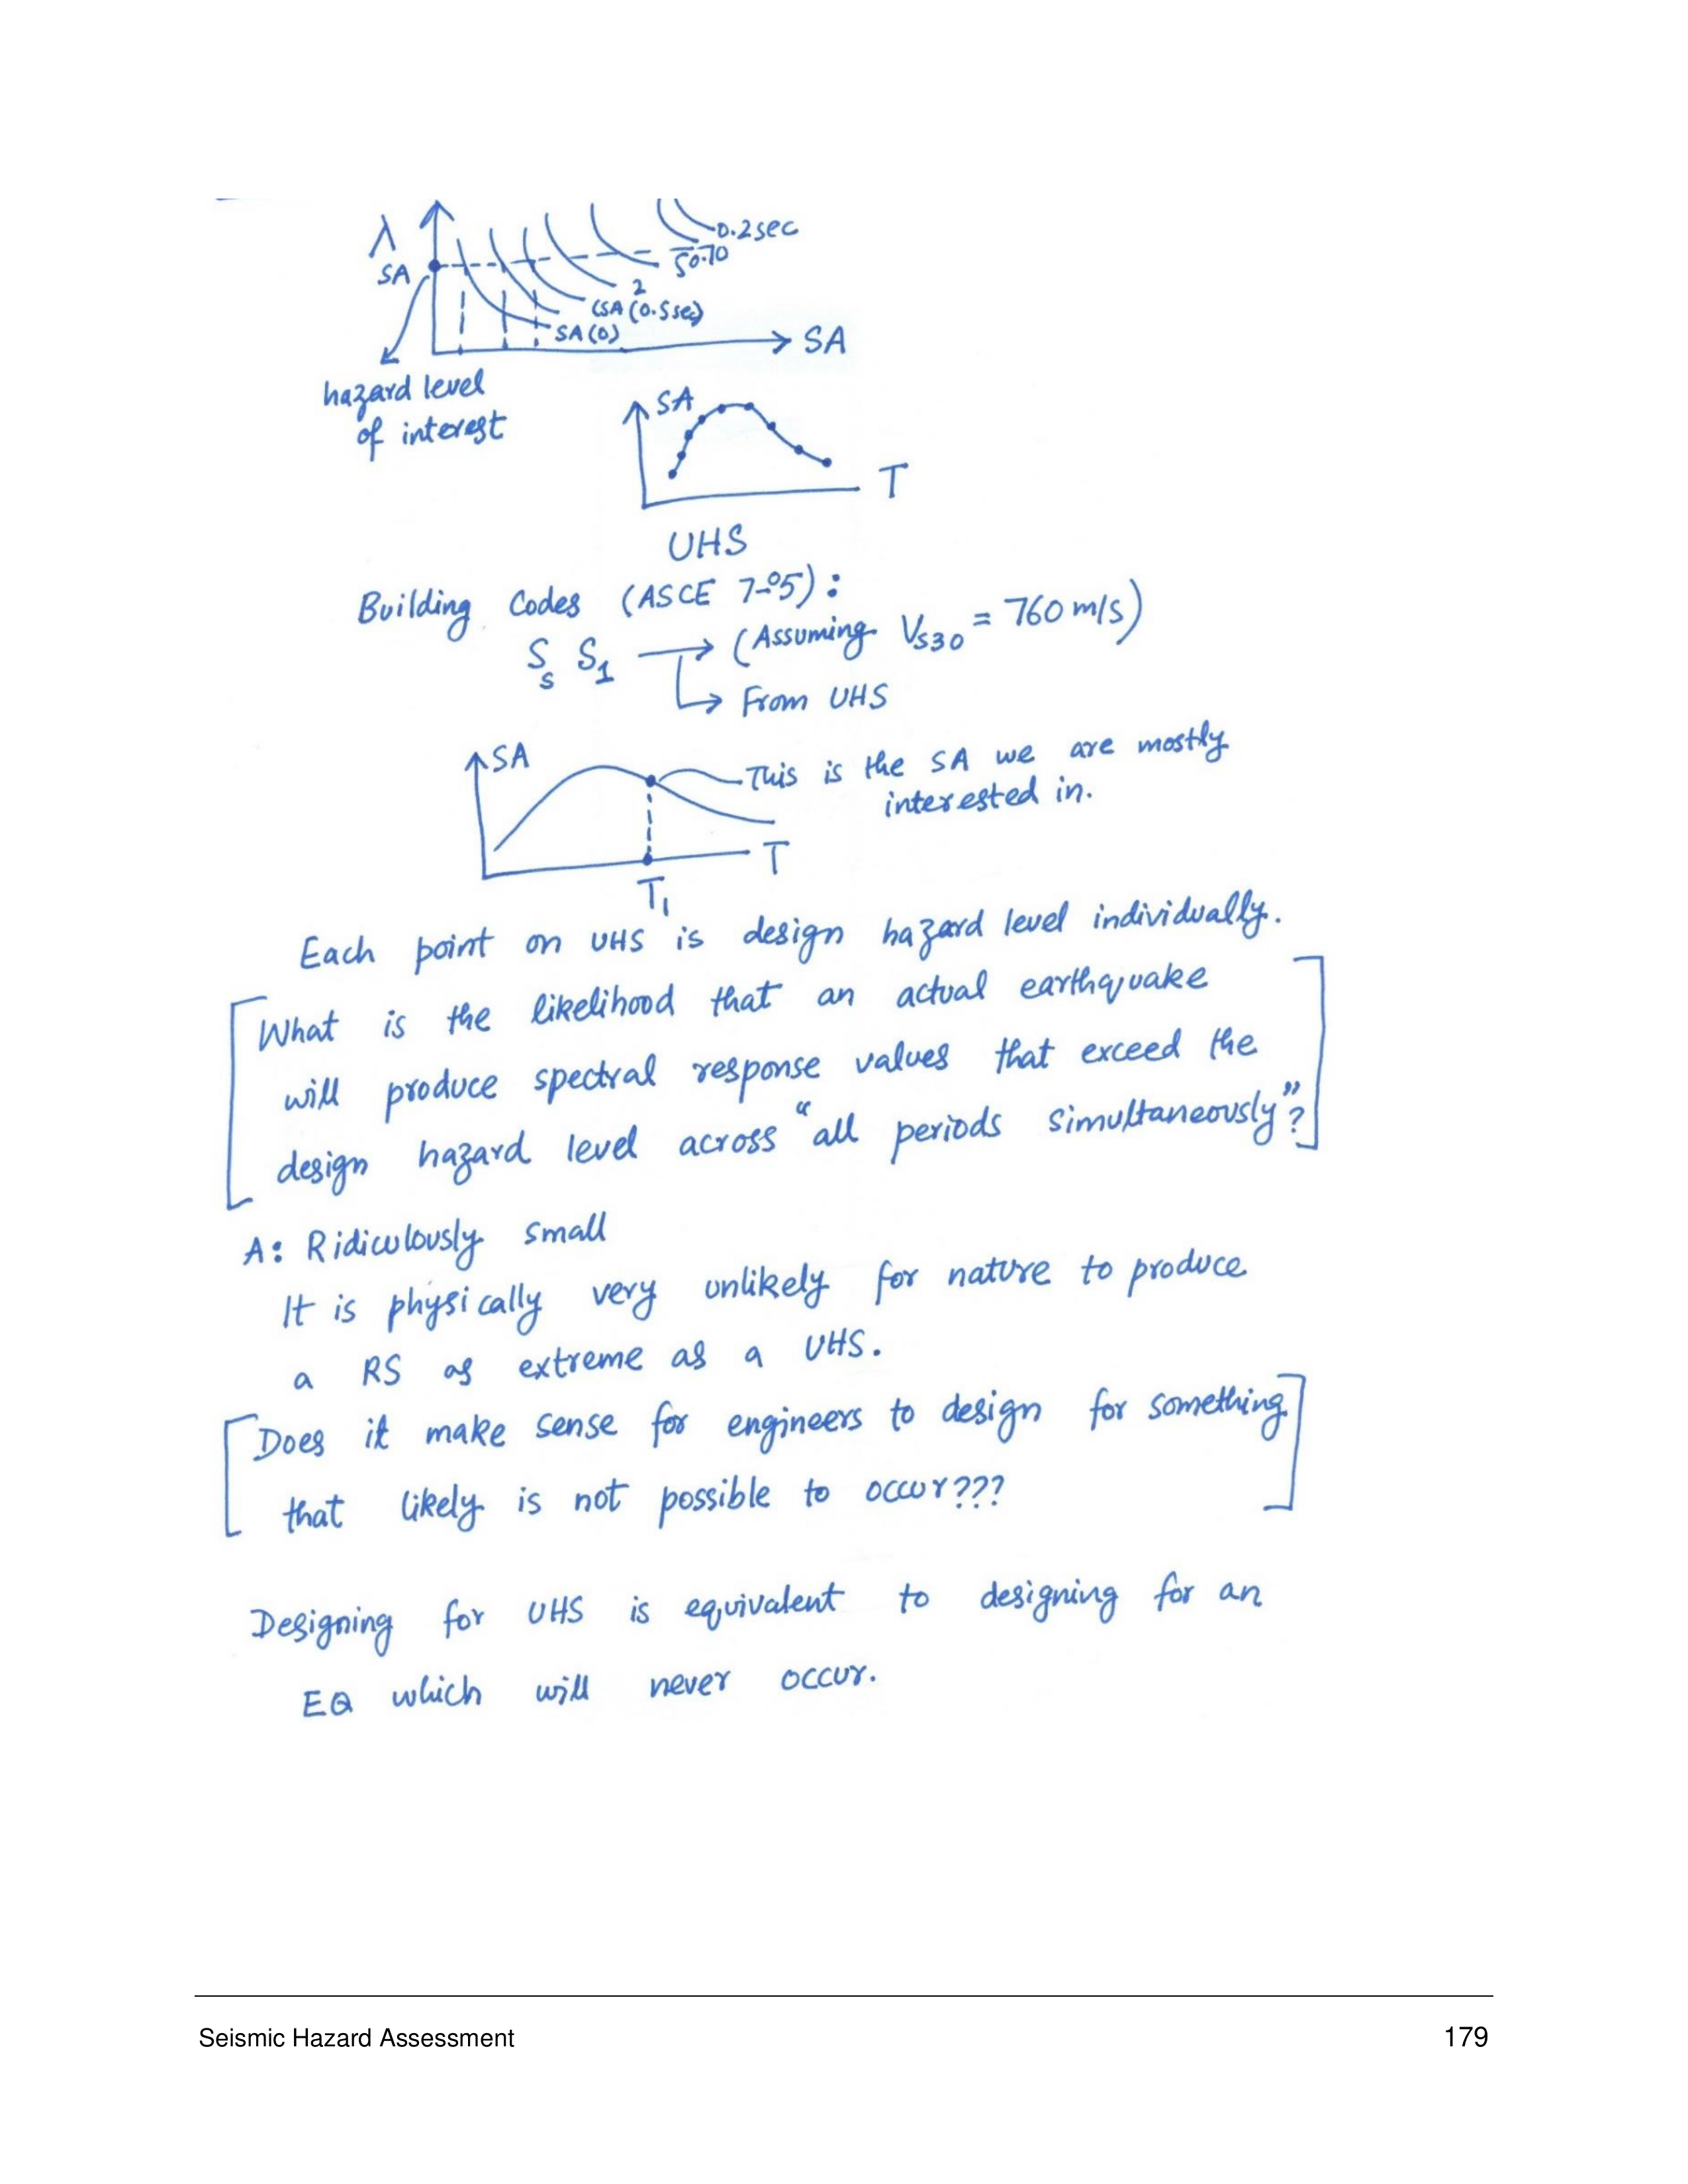 λ
SA
0.2sec
50.70
2
(SA (0.5sec)
SA(0)
SA
hazard level
of interest
SA
T
UHS
Building Codes (ASCE 7-05):
Ss S1 (Assuming Vs30 = 760 m/s)
From UHS
SA
This is the SA we are mostly
interested in.
T
T1
Each point on UHS is design hazard level individually.
[What is the likelihood that an actual earthquake
will produce spectral response values that exceed the
design hazard level across "all periods simultaneously"?]
A: Ridiculously small
It is physically very unlikely for nature to produce
a RS as extreme as a UHS.
[Does it make sense for engineers to design for something
that likely is not possible to occur???]
Designing for UHS is equivalent to designing for an
EQ which will never occur.
Seismic Hazard Assessment 179